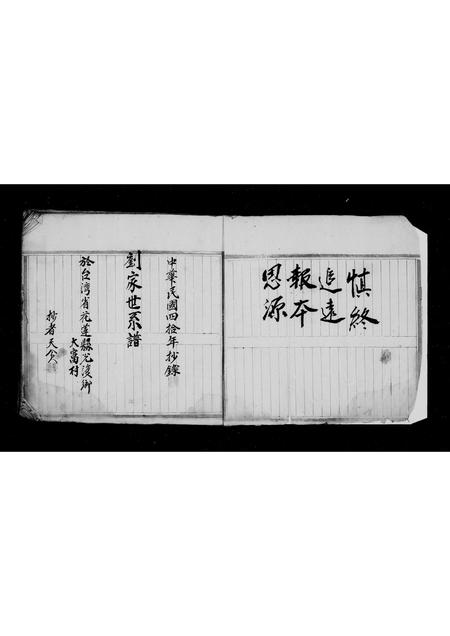 慎終
追遠
報本
恩源
中華民國四拾年抄錄
劉家世系譜
於台湾省花蓮縣光復鄉
大富村
抄者天